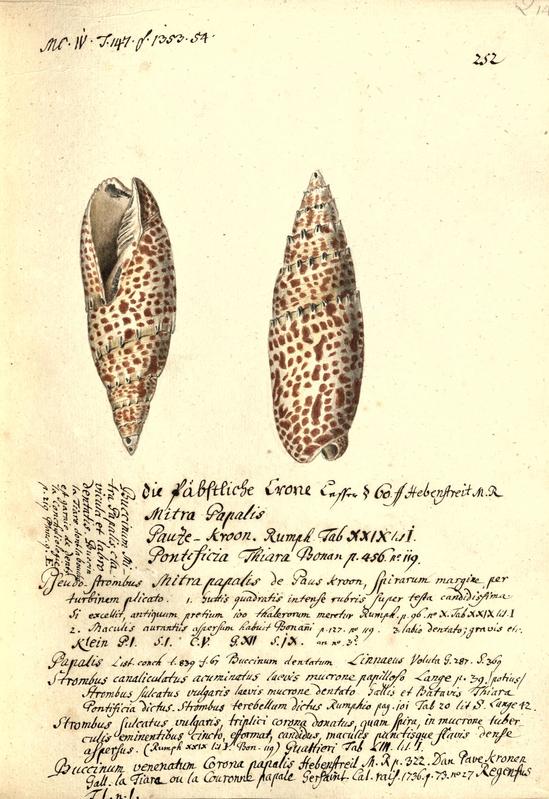 214
MC. IV. T. 147. f. 1353. 54.
252
die Päbstliche Crone Lesser § 60. ff Hebenstreit M.R
Mitra Papalis
Pauze-Kroon. Rumph. Tab XXIX lit I.
Pontificia Thiara Bonan p. 456. n° 119.
Buccinum Mi-
tra Papalis cla-
vicula et labro
dentatis. Buccin
la Tiare
et garnie de dents
Pseudo-strombus Mitra papalis de Paus kroon, spirarum margine per
turbinem plicato. 1. guttis quadratis intense rubris super testa candidissima.
Si excellit, antiquum pretium 100 thalerorum meretur Rumph. p. 96. n° X. Tab XXIX lit. I
2. Maculis aurantiis aspersum habuit Bonani p. 127. n° 119. 3. labio dentato; gravis etc.
Klein P.I. S.I. C.V. G.XII S.IX. n° 3.
Papalis List. conch t. 839 f. 67 Buccinum dentatum. Linnaeus Voluta G. 287. S. 369
Strombus canaliculatus acuminatus laevis mucrone papilloso Lange p. 29. potius/
Strombus sulcatus vulgaris laevis mucrone dentato Gallis et Batavis Thiara
Pontificia dictus. Strombus terebellum dictus Rumphio pag. 101 Tab 20 lit S. Lange 42.
Strombus sulcatus vulgaris, triplici corona donatus, quam spira, in mucrone tuber-
culis eminentibus cincto, efformat, candidus, maculis punctisque flavis dense
aspersus. (Rumph XXIX lit I. Bon. 119) Gualtieri Tab LIII. lit. I.
Buccinum venenatum Corona papalis Hebenstreit M.R p. 322. Dan Pave Kronen
Gall. la Tiare ou la Couronne papale Gersaint Cat. rais. 1736. p. 73. n° 27 Regenfus
T. I. n. 1.